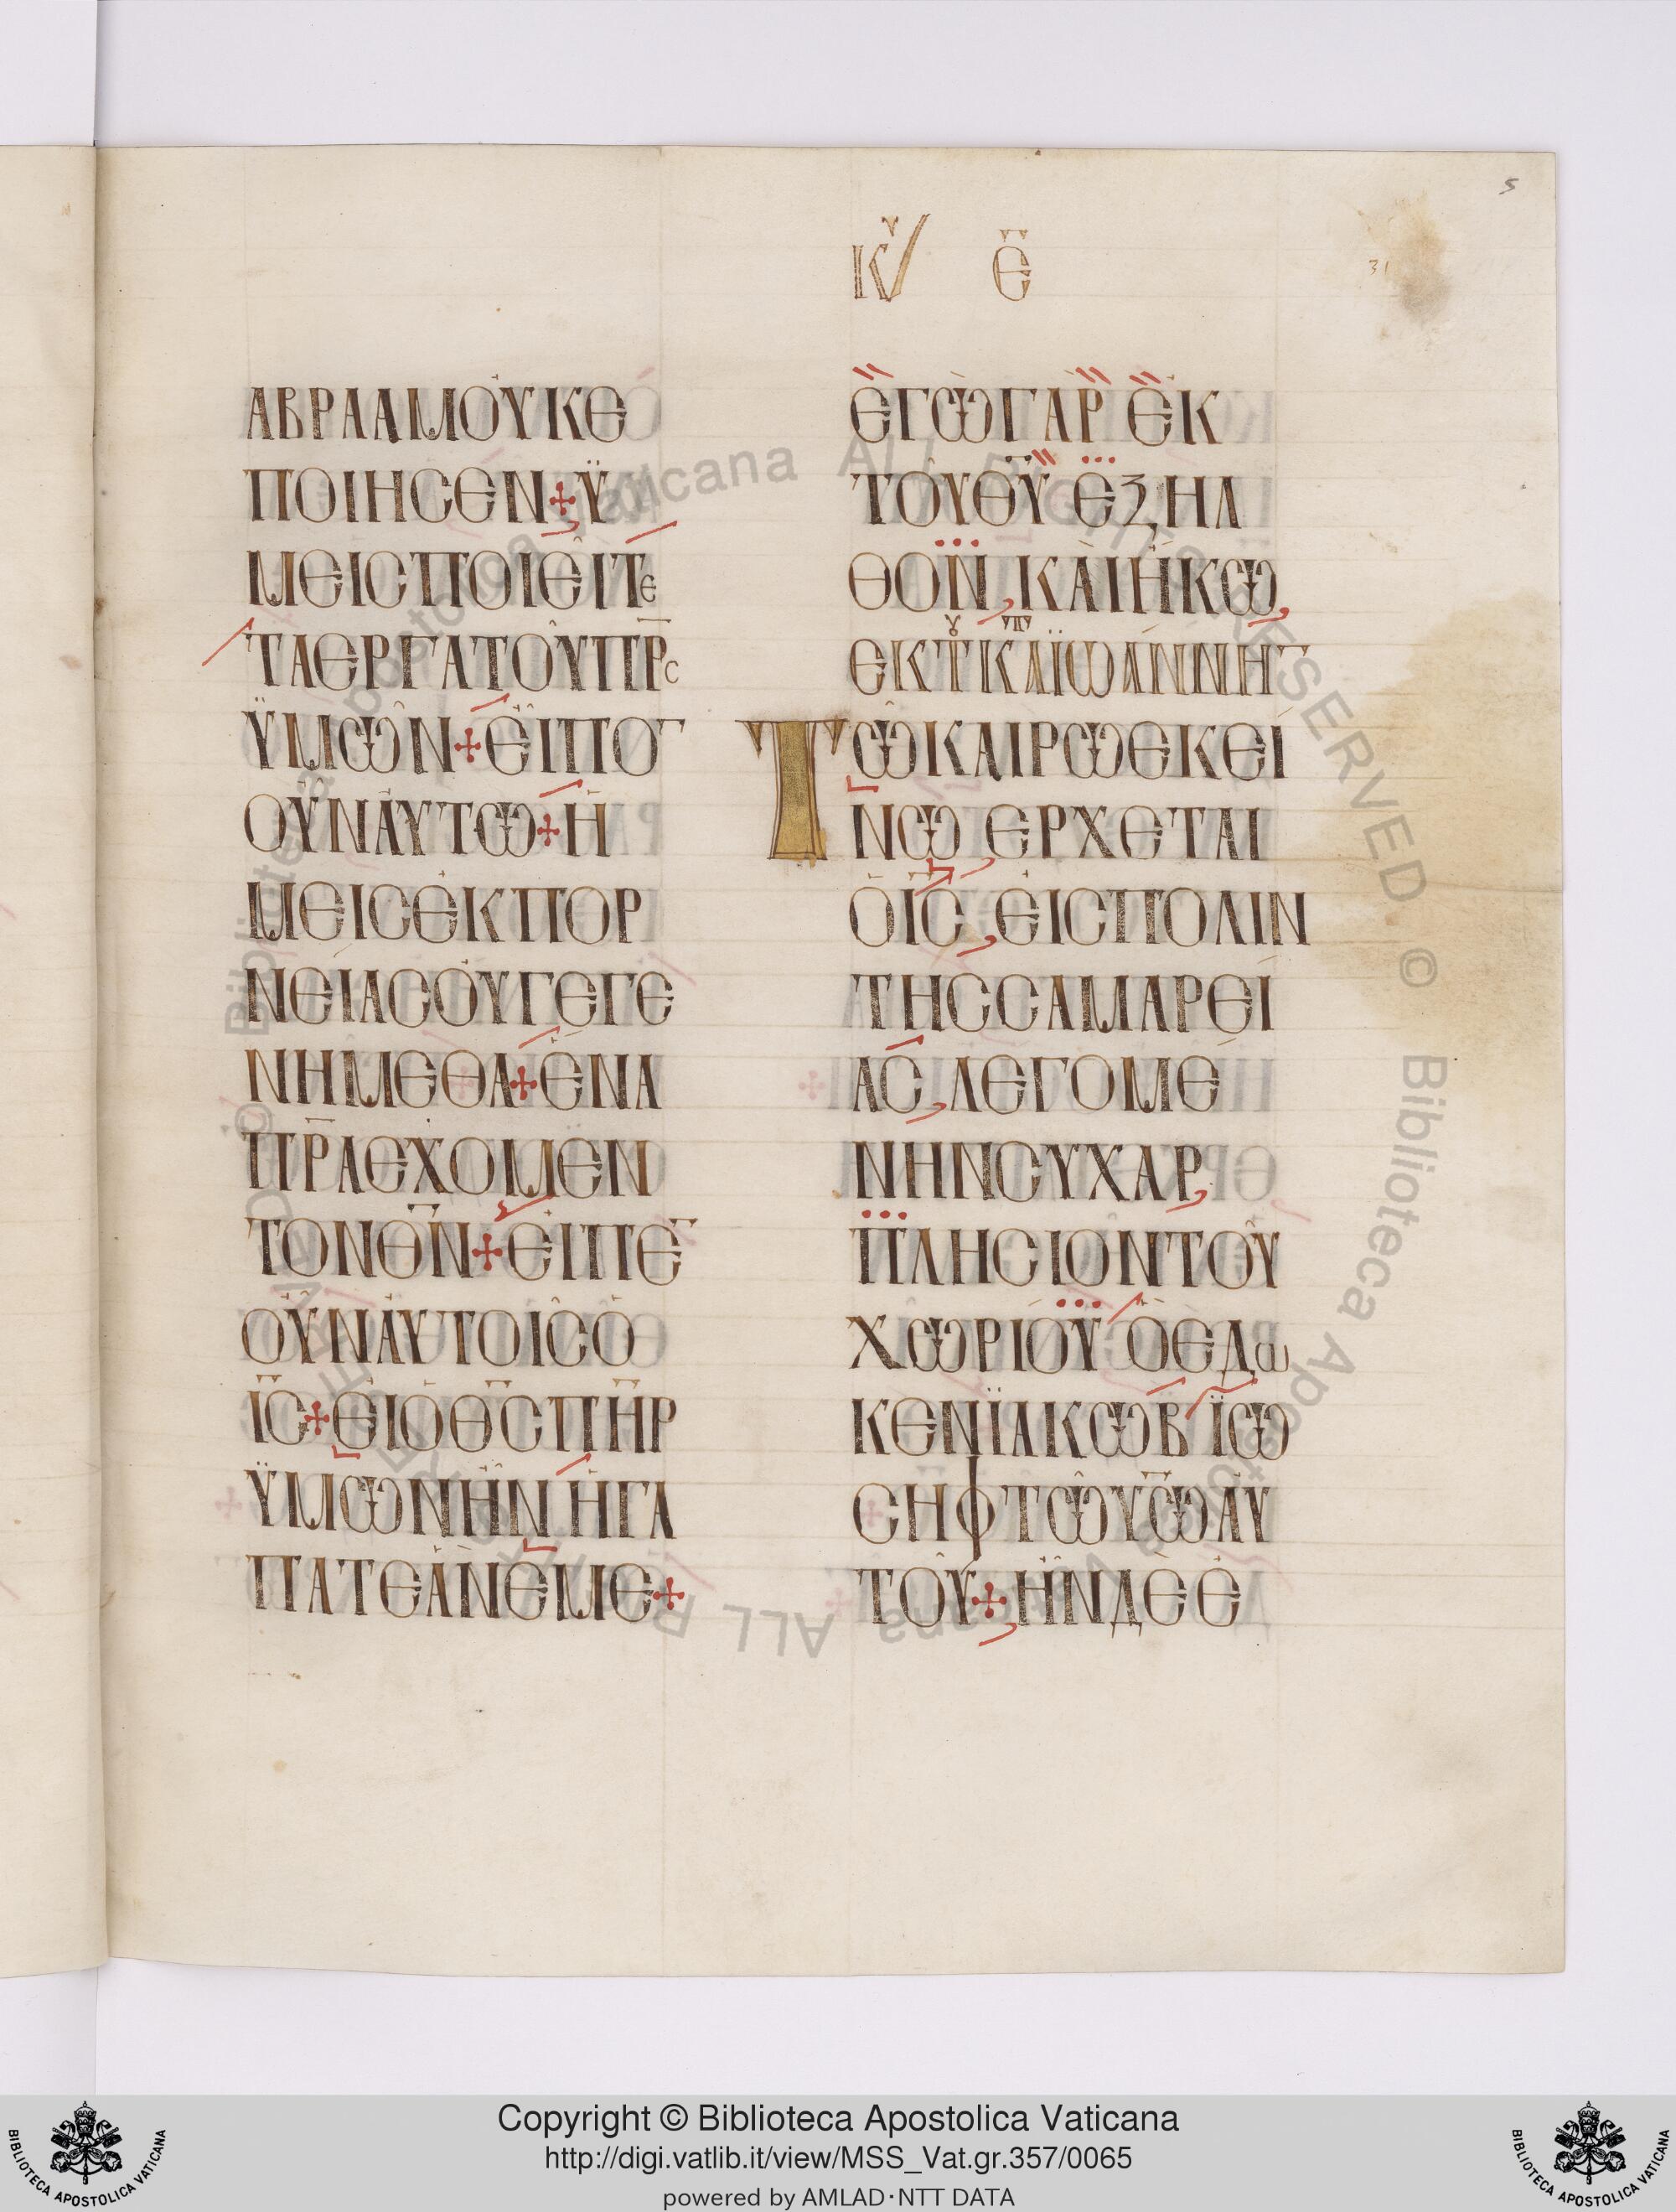 5
Κυ Ε
31
ΑΒΡΑΑΜΟΥΚΕ
ΠΟΙΗϹΕΝ+Ϋ
ΜΕΙϹΠΟΙΕΙΤΕ
ΤΑΕΡΓΑΤΟΥΠΡ̅Ϲ
ΫΜΩΝ+ΕΙΠΟ̅
ΟΥΝΑΥΤΩ+Η
ΜΕΙϹΕΚΠΟΡ
ΝΕΙΑϹΟΥΓΕΓΕ
ΝΗΜΕΘΑ+ΕΝΑ
ΠΡ̅ΑΕΧΟΜΕΝ
ΤΟΝΘ̅Ν̅+ΕΙΠΕ̅
ΟΥΝΑΥΤΟΙϹΟ
Ι̅Ϲ̅+ΕΙΟΘ̅Ϲ̅ΠΗ̅Ρ
ΫΜΩΝΗΝ ΗΓΑ
ΠΑΤΕΑΝΕΜΕ+
ΕΓΩΓΑΡ ΕΚ
ΤΟΥΘ̅Υ̅ ΕΞΗΛ
ΘΟΝ, ΚΑΙΗΚΩ,
ΕΚΤΚΑΪΩΑΝΝΗ̅
ΤΩΚΑΙΡΩΕΚΕΙ
ΝΩ ΕΡΧΕΤΑΙ
ΟΙ̅Ϲ̅ ΕΙϹΠΟΛΙΝ
ΤΗϹϹΑΜΑΡΕΙ
ΑϹ, ΛΕΓΟΜΕ
ΝΗΝϹΥΧΑΡ,
ΠΛΗϹΙΟΝΤΟΥ
ΧΩΡΙΟΥ ΟΕΔΩ
ΚΕΝΪΑΚΩΒ ΪΩ
ϹΗΦΤΩΥ̅Ω̅ΑΥ
ΤΟΥ+ΗΝΔΕΕ
Copyright © Biblioteca Apostolica Vaticana
http://digi.vatlib.it/view/MSS_Vat.gr.357/0065
powered by AMLAD·NTT DATA
BIBLIOTECA APOSTOLICA VATICANA
BIBLIOTECA APOSTOLICA VATICANA